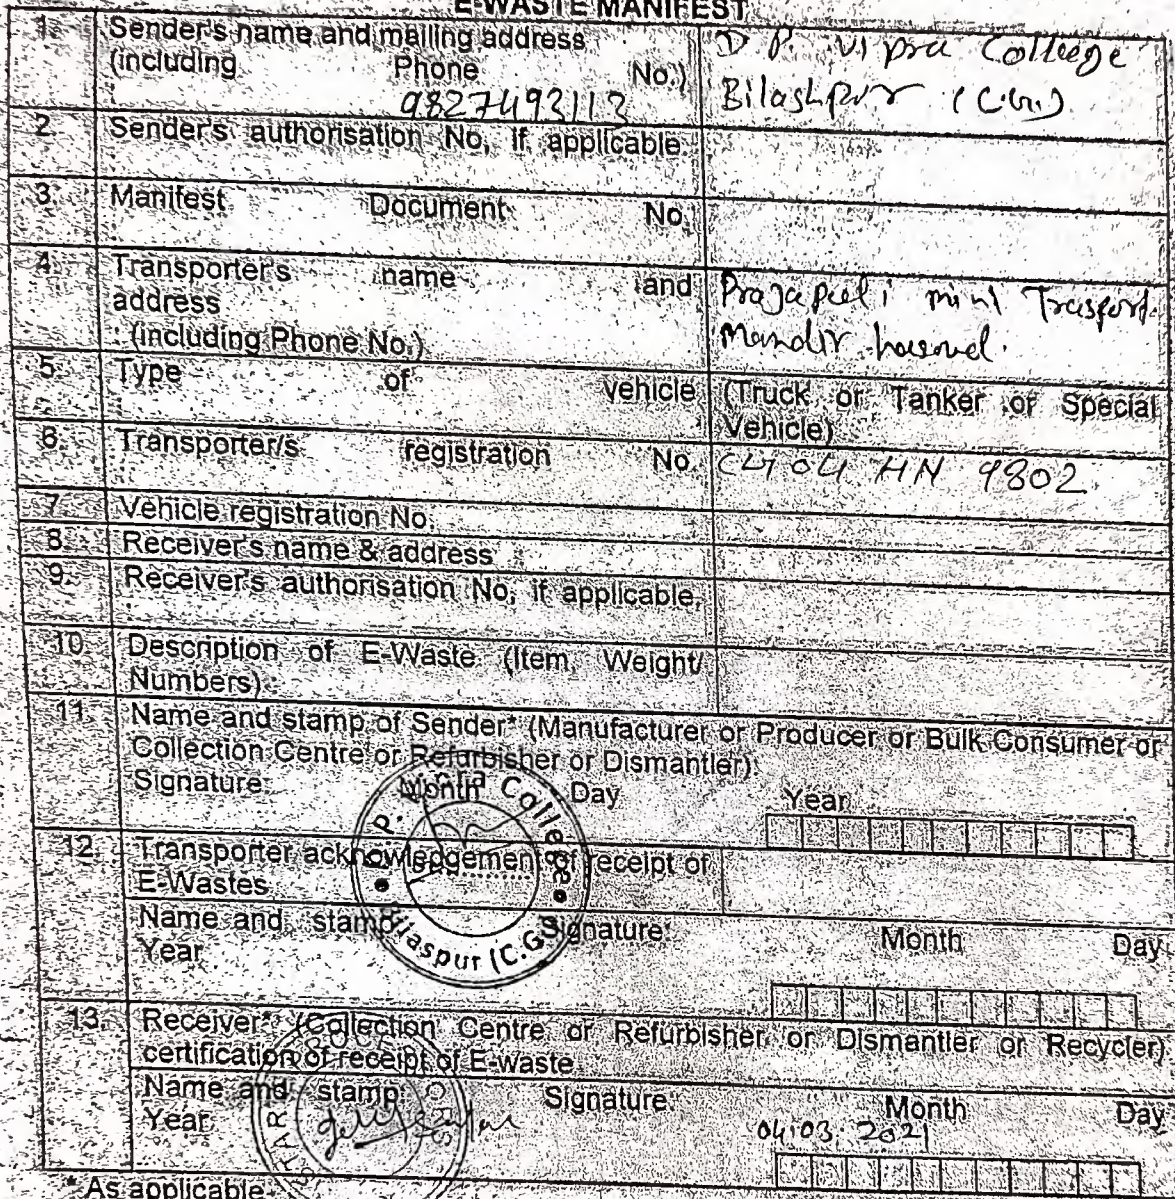 E-WASTE MANIFEST
1. Sender's name and mailing address
(including Phone No.)
9827493113
D P. Vipra College
Bilashpur (C.G.)
2 Sender's authorisation No, if applicable
3. Manifest Document No.
4. Transporter's name and
address
(including Phone No.)
Prajapeeti mini Trasport
Mandir
5. Type of vehicle
(Truck or Tanker or Special
Vehicle)
6. Transporter/s registration No.
CG 04 HN 9802
7. Vehicle registration No.
8. Receiver's name & address
9. Receiver's authorisation No, if applicable.
10. Description of E-Waste (Item, Weight/
Numbers)
11. Name and stamp of Sender* (Manufacturer or Producer or Bulk Consumer or
Collection Centre or Refurbisher or Dismantler):
Signature: Month Day Year
P. Vipra College
Bilaspur (C.G.)
12. Transporter acknowledgement of receipt of
E-Wastes
Name and stamp: Signature: Month Day
Year
13. Receiver* (Collection Centre or Refurbisher or Dismantler or Recycler)
certification of receipt of E-waste
Name and stamp: Signature: Month Day
Year:
STAR
04.03.2021
* As applicable